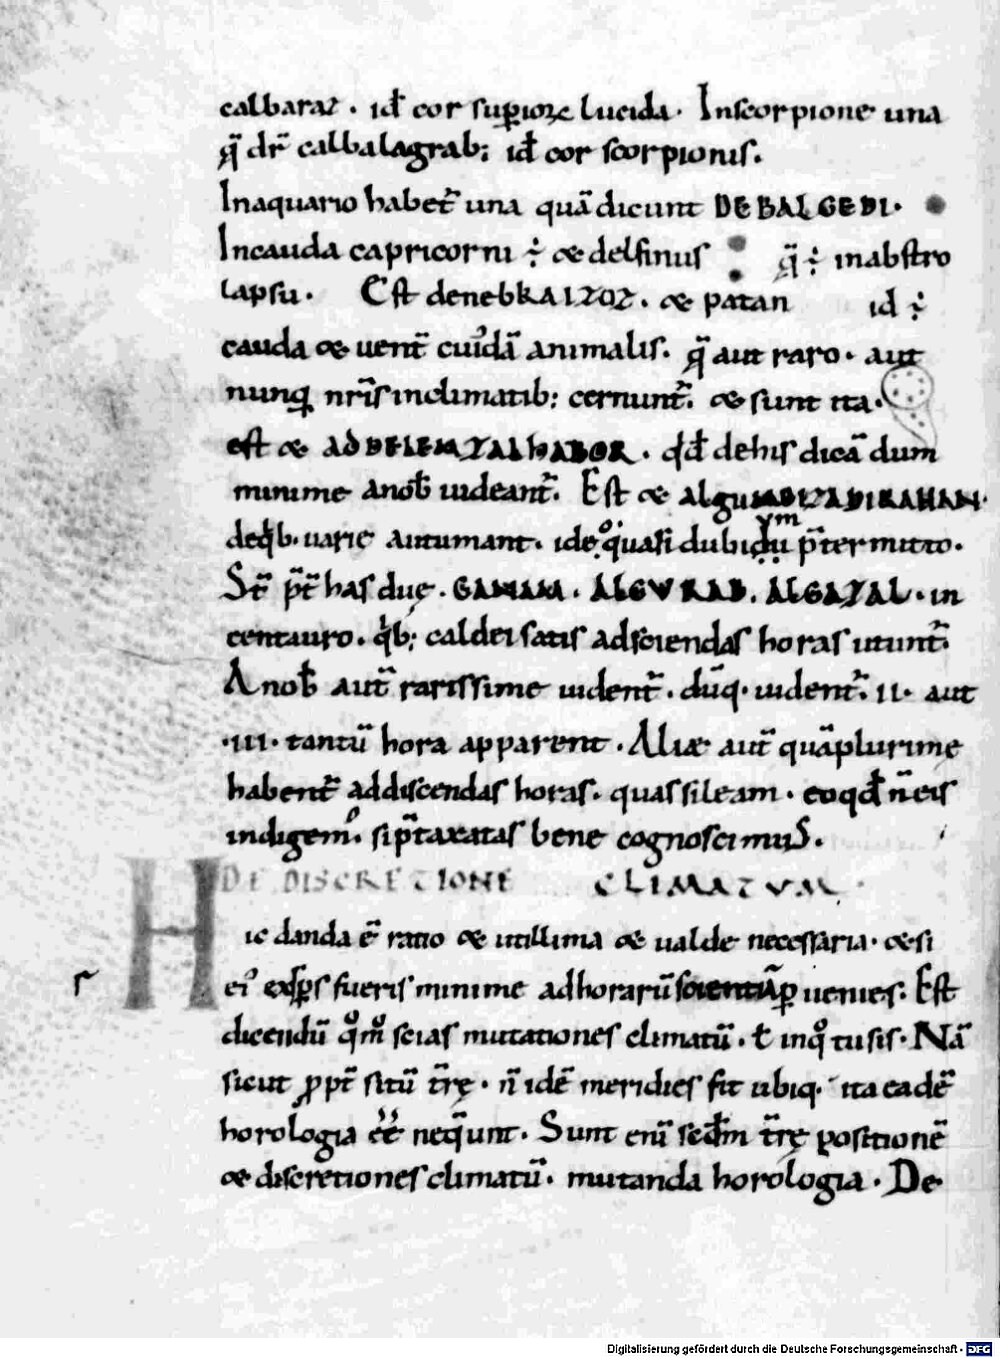 calbaraz . id̄ cor superiore lucida. Inscorpione una
q̄ dr̄ calbalagrab; id̄ cor scorpionis.
Inaquario habet̄ una quā dicunt DEBALGEDI.
Incauda capricorni ÷ & delfinus q̄ ÷ inabstro
lapsu. Est denebKAIZOZ. & patan id ÷
cauda & uent̄ cuidā animalis. q̄ aut raro. aut
nunq nr̄is inclimatib; cernunt̄. & sunt ita.
est & ADBELEMZALHABOR. qd̄ dehis dicā dum
minime anob̄ uideant̄. Est & algu
deqb. uarie autumant. ideo quasi dubiū p̄termitto.
St̄ p̄t has duę. GAMAM. ALGVRAB. ALGAZAL. in
centauro. qb; caldei satis adsciendas horas utunt̄.
Anob̄ aut̄ rarissime uident̄. dūq. uident̄. II. aut
.III. tantū hora apparent. Aliæ aut̄ quāplurimę
habent̄ addiscendas horas. quas sileam. eoqd̄ n̄ eis
indigem. si p̄taxatas bene cognoscimuS.
DE DISCRETIONE CLIMATVM.
Hic danda ē ratio & utillima & ualde necessaria. & si
r ei exp̄s fueris minime adhorarū scientiā puenies. Est
dicendū qm̊ scias mutationes climatū. ł inq̊ tu sis. Nā
sicut ppt̄ sitū tr̄ę. n̄ idē meridies fit ubiq. ita eadē
horologia ēē neq̄unt. Sunt eni sed̄m tr̄ę positionē
& discretiones climatū. mutanda horologia. De
Digitalisierung gefördert durch die Deutsche Forschungsgemeinschaft - DFG